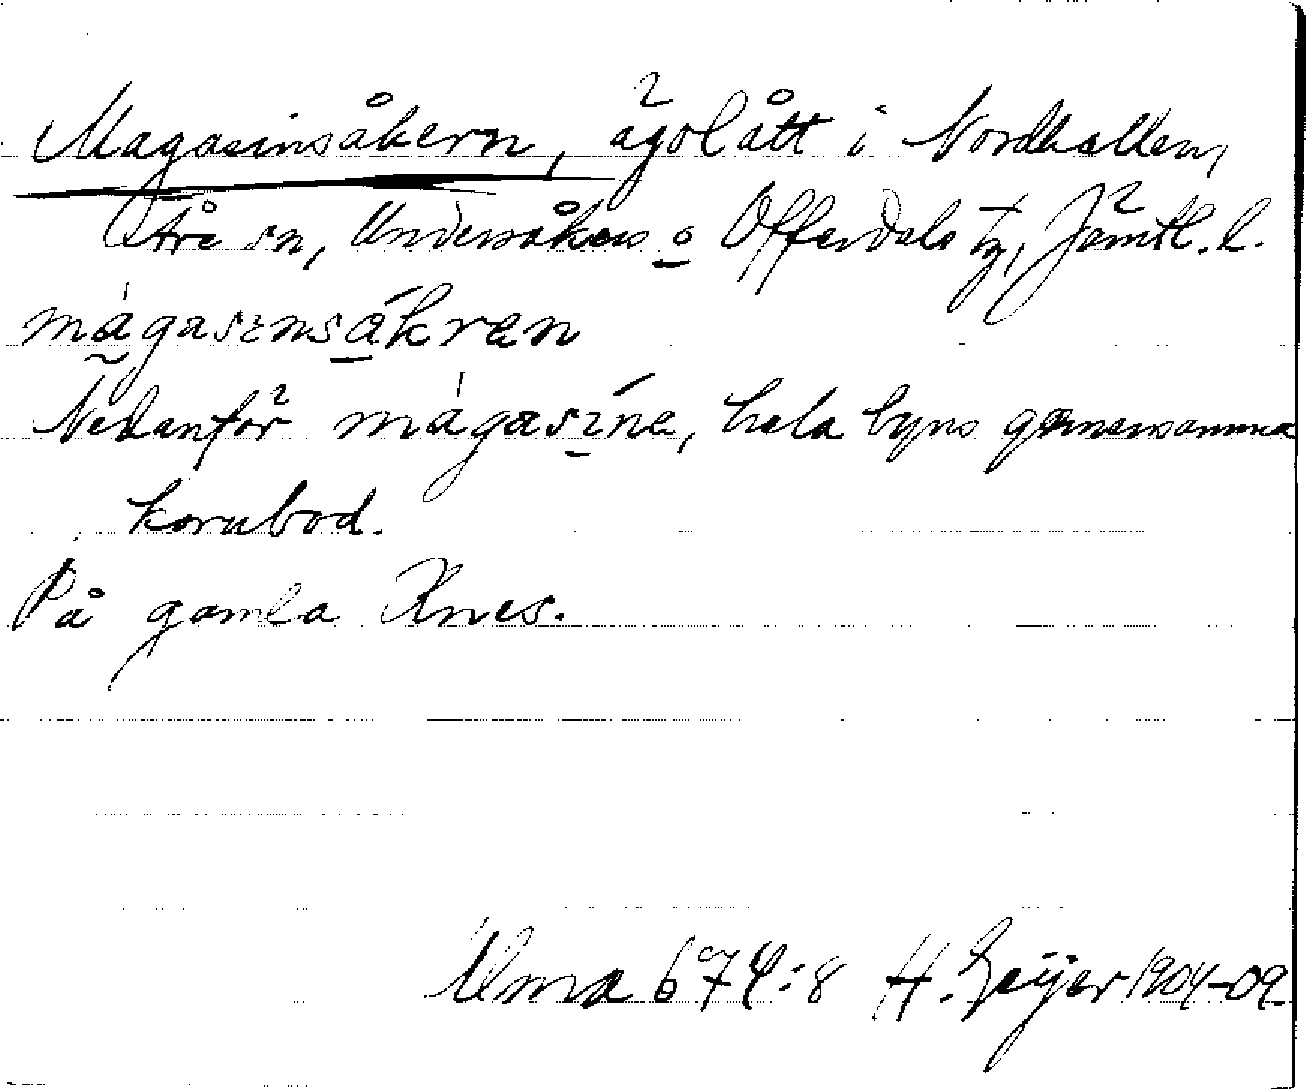 Magasinsåkern, ägolått i Nordhallen,
Åre sn, Undersåkers o Offerdals tg, Jämtl. l.
màgasinsåkran
Nedanför màgasína, hela byns gemensamma
kornbod.
På gamla Knes.
Ulma 674:8 H. Geijer 1904-09